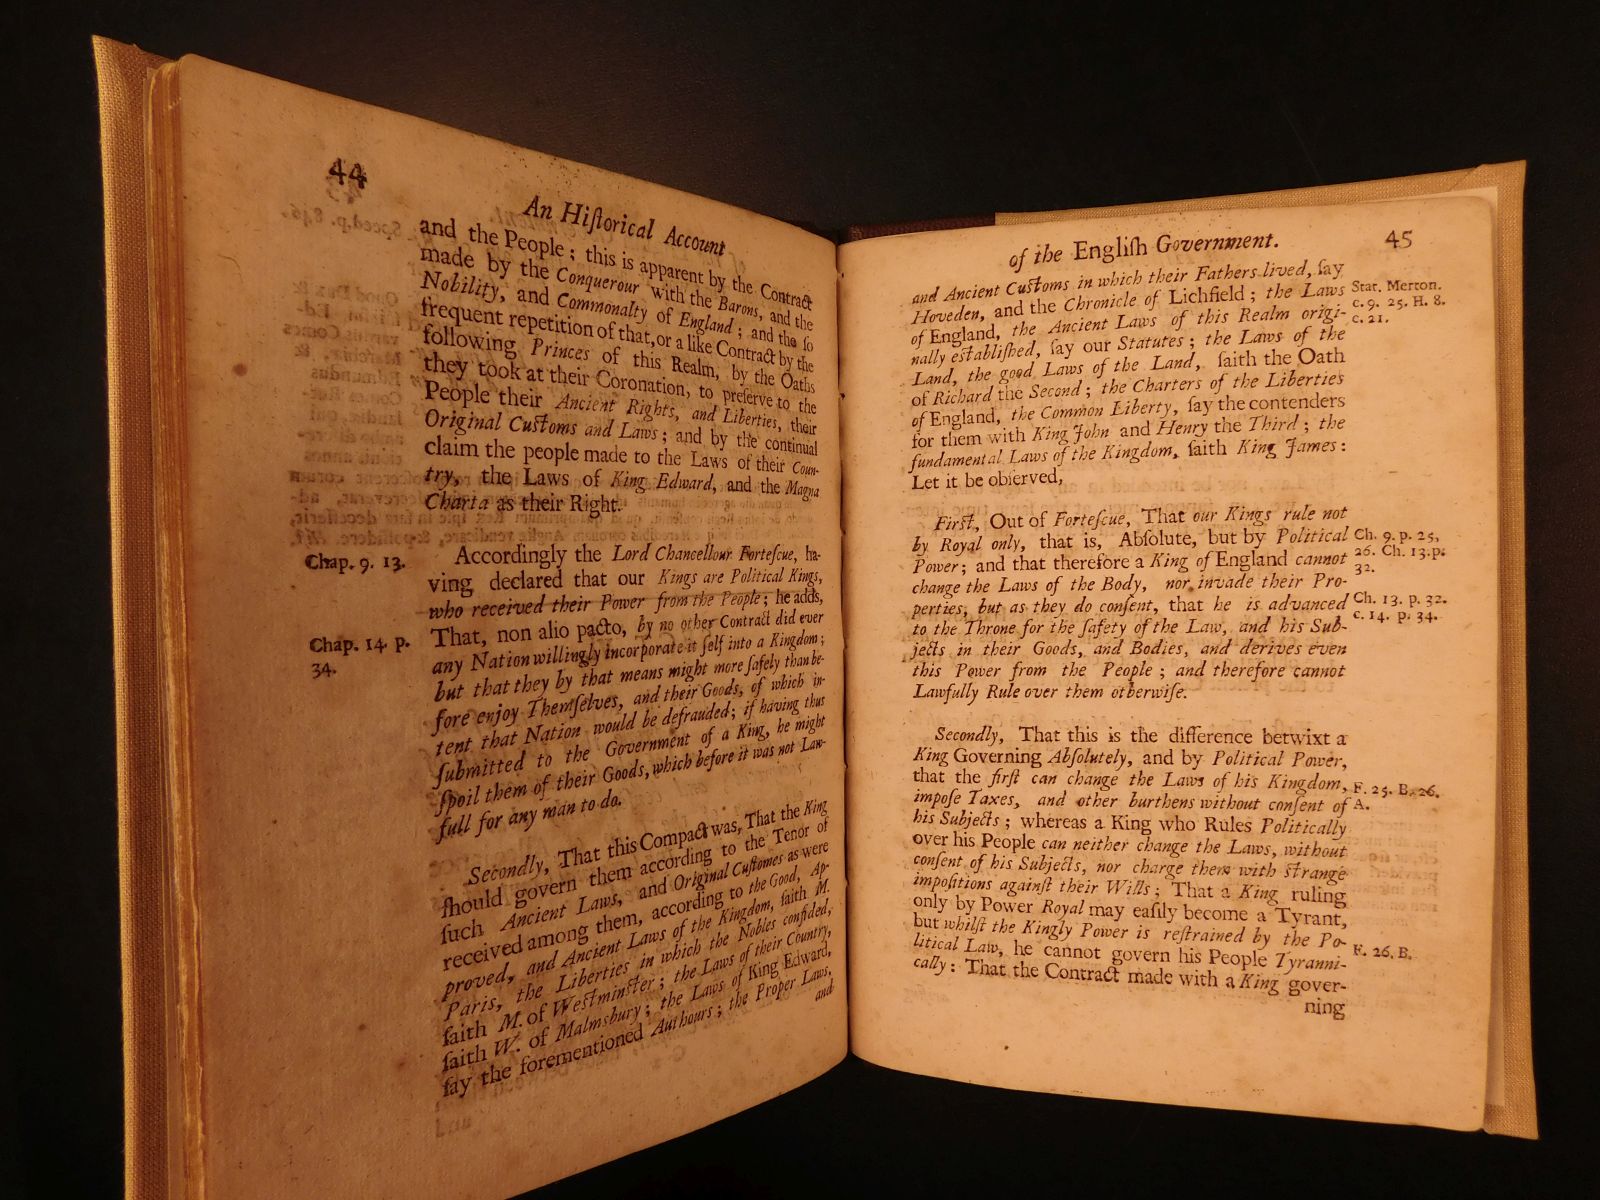 44
An Hiſtorical Account
and the People; this is apparent by the Contract
made by the Conquerour with the Barons, and the
Nobility, and Commonalty of England; and the ſo
frequent repetition of that, or a like Contract by the
following Princes of this Realm, by the Oaths
they took at their Coronation, to preſerve to the
People their Ancient Rights, and Liberties, their
Original Cuſtoms and Laws; and by the continual
claim the people made to the Laws of their Coun-
try, the Laws of King Edward, and the Magna
Charta as their Right.
Chap. 9. 13.
Accordingly the Lord Chancellour Forteſcue, ha-
ving declared that our Kings are Political Kings,
who received their Power from the People; he adds,
Chap. 14. p.
34.
That, non alio pacto, by no other Contract did ever
any Nation willingly incorporate it ſelf into a Kingdom;
but that they by that means might more ſafely than be-
fore enjoy Themſelves, and their Goods, of which in-
tent that Nation would be defrauded; if having thus
ſubmitted to the Government of a King, he might
ſpoil them of their Goods, which before it was not Law-
full for any man to do.
Secondly, That this Compact was, That the King
ſhould govern them according to the Tenor of
ſuch Ancient Laws, and Original Cuſtomes as were
received among them, according to the Good, Ap-
proved, and Ancient Laws of the Kingdom, ſaith M.
Paris, the Liberties in which the Nobles confided,
ſaith M. of Weſtminſter; the Laws of their Country,
ſaith W. of Malmsbury; the Laws of King Edward,
ſay the forementioned Authours; the Proper Laws,
and
of the Engliſh Government.
45
and Ancient Cuſtoms in which their Fathers lived, ſay
Hoveden, and the Chronicle of Lichfield; the Laws
of England, the Ancient Laws of this Realm origi-
nally eſtabliſhed, ſay our Statutes; the Laws of the
Land, the good Laws of the Land, ſaith the Oath
of Richard the Second; the Charters of the Liberties
of England, the Common Liberty, ſay the contenders
for them with King John and Henry the Third; the
fundamental Laws of the Kingdom, ſaith King James:
Let it be obſerved,
Stat. Merton.
c. 9. 25. H. 8.
c. 21.
Firſt, Out of Forteſcue, That our Kings rule not
by Royal only, that is, Abſolute, but by Political
Power; and that therefore a King of England cannot
change the Laws of the Body, nor invade their Pro-
perties, but as they do conſent, that he is advanced
to the Throne for the ſafety of the Law, and his Sub-
jects in their Goods, and Bodies, and derives even
this Power from the People; and therefore cannot
Lawfully Rule over them otherwiſe.
Ch. 9. p. 25,
26. Ch. 13. p.
32.
Ch. 13. p. 32.
c. 14. p. 34.
Secondly, That this is the difference betwixt a
King Governing Abſolutely, and by Political Power,
that the firſt can change the Laws of his Kingdom,
impoſe Taxes, and other burthens without conſent of
his Subjects; whereas a King who Rules Politically
over his People can neither change the Laws, without
conſent of his Subjects, nor charge them with ſtrange
impoſitions againſt their Wills; That a King ruling
only by Power Royal may eaſily become a Tyrant,
but whilſt the Kingly Power is reſtrained by the Po-
litical Law, he cannot govern his People Tyranni-
cally: That the Contract made with a King gover-
ning
F. 25. B. 26.
A.
F. 26. B.